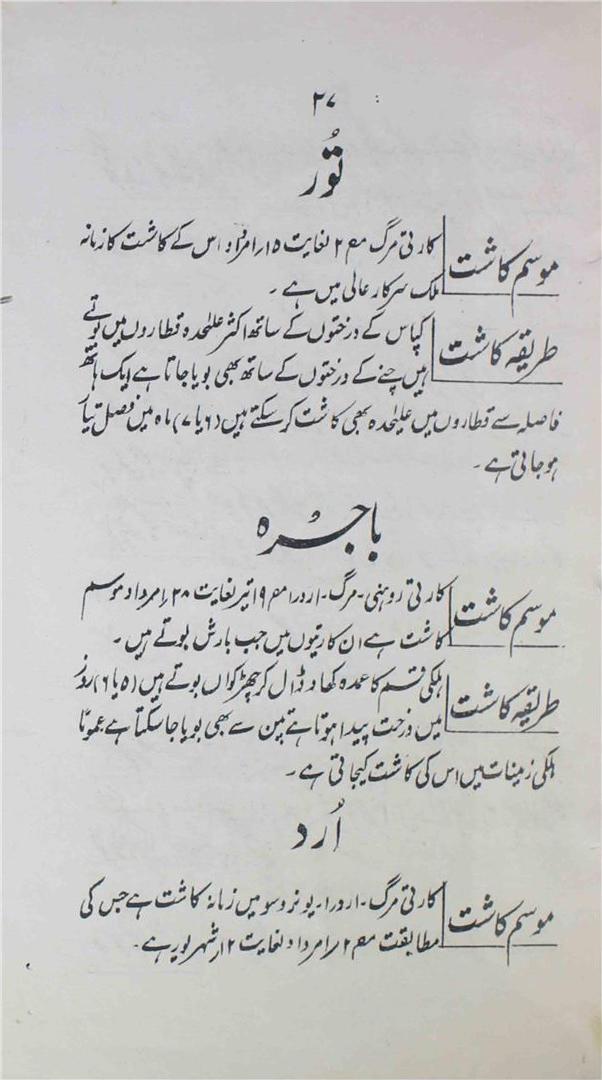 ۲۷
تُور
موسم کاشت
کارتی مرگ م ۲ لغایت ۱۵ امرداد اس کے کاشت کا زمانہ
ملک سرکار عالی میں ہے ۔
طریقہ کاشت
کپاس کے درختوں کے ساتھ اکثر علیٰحدہ قطاروں میں بوتے
ہیں چنے کے درختوں کے ساتھ بھی بویا جاتا ہے ایک ہاتھ
فاصلہ سے قطاروں میں علیٰحدہ بھی کاشت کر سکتے ہیں (۶ یا ۷) ماہ میں فصل تیار
ہو جاتی ہے ۔
باجرہ
موسم کاشت
کارتی روہنی ۔ مرگ ۔ اردرا م ۱۹ تیر لغایت ۲۸ امرداد موسم
کاشت ہے ان کارتیوں میں جب بارش ہو بوتے ہیں ۔
طریقہ کاشت
ہلکی قسم کا عمدہ کھاد ڈال کر چھڑکواں بوتے ہیں (۵ یا ۶) روز
میں درخت پیدا ہوتا ہے بین سے بھی بویا جا سکتا ہے عموماً
ہلکی زمینات میں اس کی کاشت کیجاتی ہے ۔
اُرد
موسم کاشت
کارتی مرگ ۔ اردرا ۔ پونروسو میں زمانہ کاشت ہے جس کی
مطابقت م ۲ امرداد لغایت ۱۲ شہریور ہے ۔